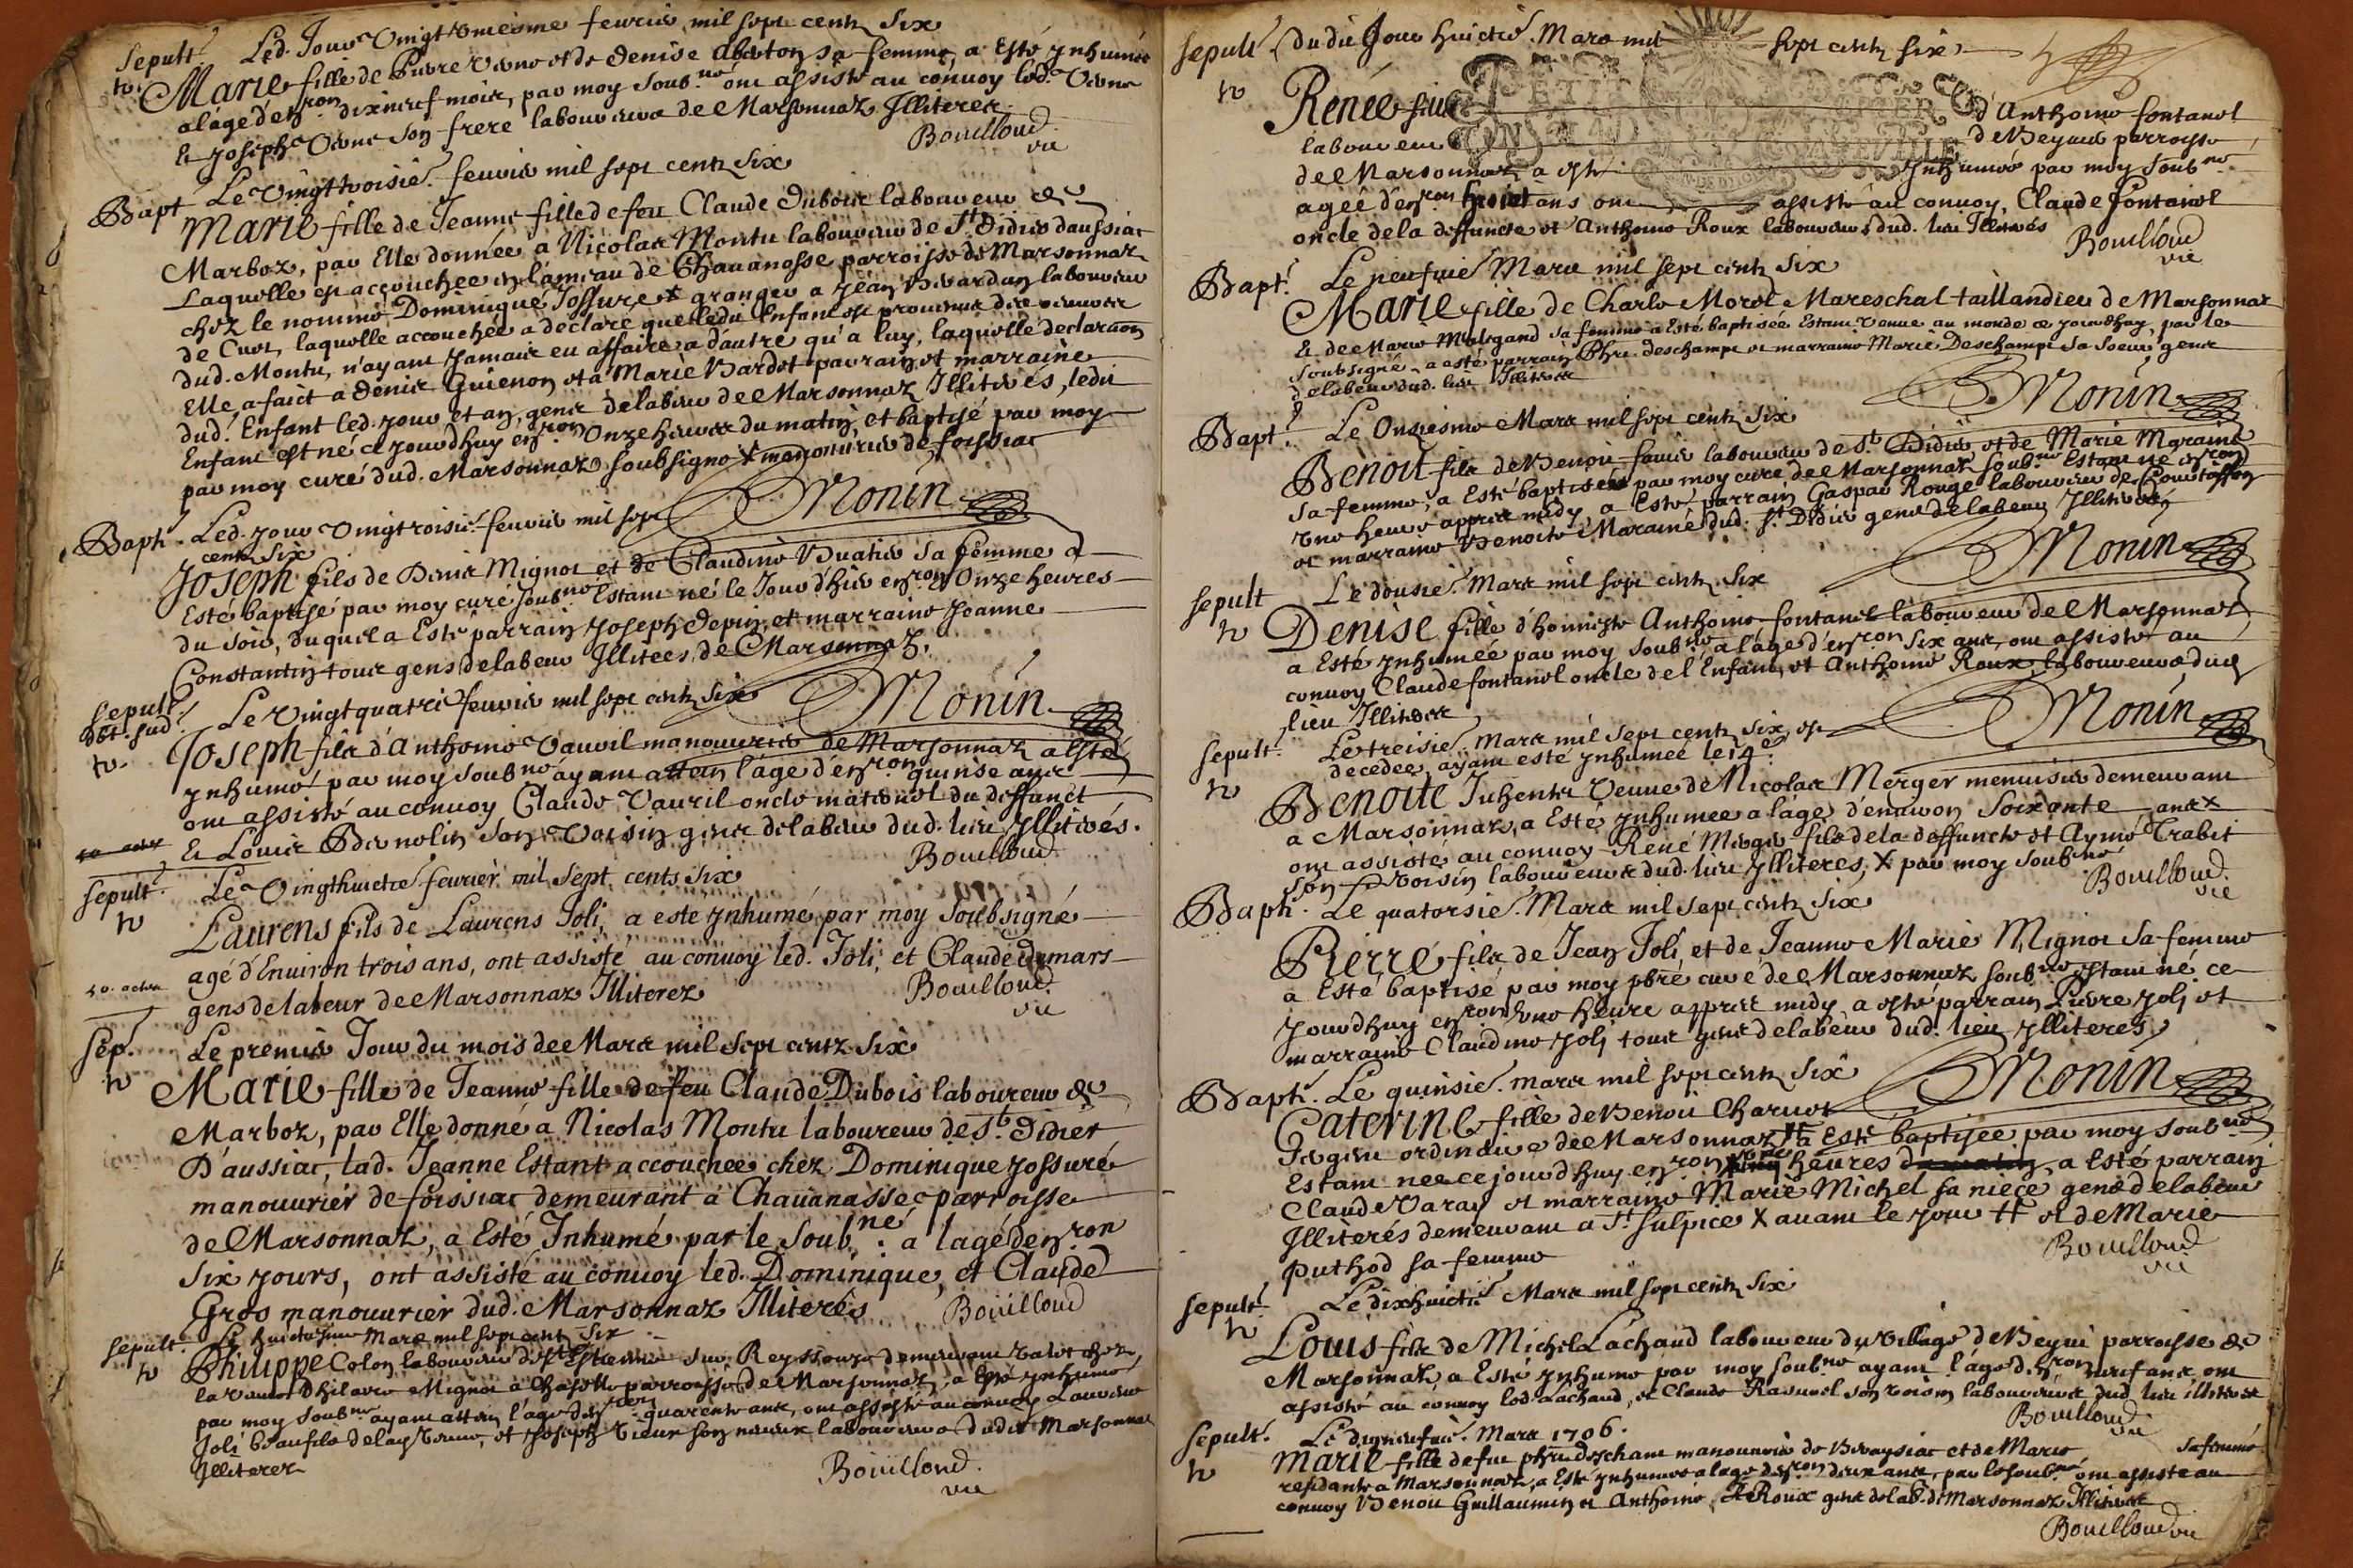 Sepult. Led. Jour Vingt uniesme feurier mil sept centz Six
Marie fille de Pierre Vieux et de Denise sa femme, a Esté ynhumée
a l'age d'enron dixneuf mois, par moy Soub.né ont assisté au conuoy led. Vieux
& Joseph Vieux Son frere laboureurs de Marsonnaz Illiteres.
Bouilloud
vic
Bapt Le Vingtroisie. feurier mil sept centz Six
Marie fille de Jeanne fille de feu Claude Dubois laboureur de
Marboz, par Elle donnée a Nicolas Montu laboureur de St. Didier daussiat
Laquelle est accouchee en l'ameau de Chauanosse parroisse de Marsonnaz
chez le nommé Dominique Jossure x granger a Jean Biuardan laboureur
de Cuet, laquelle accouchée a declaré que ledit Enfant est prouenu des oeuures
dud. Montu, n'ayant Jamais eu affaire a d'autre qu'a luy, laquelle declaraon
Elle, a faict a Denis Guienon et a Marie Bardet parrain et marraine
dud. Enfant led. jour et an, gens de labeur de Marsonnaz Illiterés, ledit
Enfant est né ce jourdhuy enron Onze heures du matin, et baptisé par moy
par moy curé dud. Marsonnaz soubsigné x manouurier de foissiat
Monin
Baph. Led. jour Vingtroisie. feurier mil sept
centz Six
Joseph fils de Denis Mignot et de Claudine Buatier sa femme a
Esté baptisé par moy curé soubné Estant né le Jour d'hier enron Onze heures
du soir, duquel a Esté parrain Joseph Depin, et marraine Jeanne
Constantin tous gens de labeur Illiteés, de Marsonnaz.
Monin
Sepult
Le Vingt quatrie feurier mil sept centz Six
Joseph fils d'Anthoine Vauril manouurier de Marsonnaz a Esté
ynhumé par moy soubné ayant attein l'age d'enron quinse ans
ont assisté au conuoy Claude Vauril oncle maternel du deffunct
& Louis Bernolin Son Voisin gens de labeur dud. lieu Illiterés.
Bouilloud
Sepult. Le Vingthuictie feurier mil sept cents Six
Laurens fils de Laurens Joli, a esté ynhumé par moy Soubsigné
agé d'Enuiron trois ans, ont assisté au conuoy led. Joli, et Claude Dumars
gens de labeur de Marsonnaz Illiterez
Bouilloud
vic
Sep. Le premier Jour du mois de Mars mil Sept centz Six
Marie fille de Jeanne fille de feu Claude Dubois laboureur de
Marboz, par Elle donné a Nicolas Montu laboureur de St. Didier
D'aussiat, lad. Jeanne Estant accouchee chez Dominique Jossure
manouurier de foissiat demeurant a Chauanasse parroisse
de Marsonnaz, a Esté Inhumé par le Soub.né a lagé denron
Six jours, ont assisté au conuoy led. Dominique, et Claude
Gros manouurier dud. Marsonnaz Illiterés
Bouilloud
Sepult. Le huictiesme Mars mil sept centz Six
Philippe Colon laboureur de St Estienne Sur Reyssouze demeurant valet chez
la veuue d'hilaire Mignot a Chaselle parroisse de Marsonnaz, a Esté ynhumé
par moy soubné ayant attein l'age denron quarente ans, ont assisté au conuoy Laurens
Joli beaufils de lad veuue, et Joseph Vieux son neueux laboureurs dudit Marsonnaz
Illiterez
Bouilloud
vic
Sepult. Dudit Jour huictie. Mars mil sept centz Six
Renée fille d'Anthoine fontanel
laboureur de Beyuis parroisse
de Marsonnaz a esté ynhumée par moy Soubné
agéé d'enron ans ont assisté au conuoy, Claude Fontanel
oncle de la deffuncte et Anthoine Roux laboureurs dud. lieu Illiterés
Bouilloud
vic
Bapt. Le neufuie Mars mil sept centz Six
Marie fille de Charle Morel Mareschal taillandier de Marsonnaz
& de Marie Malegand sa femme a Esté baptisée Estant Venue au monde ce jourdhuy, par le
soubsigné, a esté parrain Phi. deschamps et marraine Marie Deschamps sa Soeur gens
de labeur dud. lieu Illiteres
Monin
Bapt. Le Onziesme Mars mil sept centz Six
Benoit fils de Benoit fauier laboureur de St. Didier et de Marie Maraine
sa femme, a Esté baptisé par moy curé de Marsonnaz soub.né Estant né enron
vne heure appres midy, a Esté parrain Gaspar Rouge laboureur de
et marraine Benoite Maraine dud. St. Didier gens de labeur Illiterés
Monin
Sepult Le Dousie. Mars mil sept centz Six
Denise fille d'honneste Anthoine fontanel laboureur de Marsonnaz
a Esté ynhumée par moy Soubné a l'age d'enron Six ans, ont assisté au
conuoy Claude fontanel oncle de l'Enfant, et Anthoine Roux laboureurs dud
lieu Illiteres
Monin
Sepult. Le treisie. Mars mil sept centz Six, est
decedée, ayant esté ynhumeé le 14e
Benoite Juhenter Veuue de Nicolas Merger menuisier demeurant
a Marsonnaz, a Esté ynhumee a l'age d'enuiron Soixante ans x
ont assisté au conuoy René Merger fils de la deffuncte et Aymé Trabet
son voisin laboureurs dud. lieu Illiteres, x par moy soubné
Bouilloud
vic
Baph. Le quatorsie. Mars mil sept centz Six
Pierre fils de Jean Joli, et de Jeanne Marie Mignot sa femme
a Esté baptisé par moy pbre curé de Marsonnaz soubné Estant né ce
jourdhuy enron vne heure appres midy a esté parrain Pierre Joli et
marraine Claudine Joli tous gens de labeur dud. lieu Illiterés
Monin
Baph. Le quinsie. Mars mil sept centz Six
Caterine fille de Benoit Charuet
ordinaire de Marsonnaz tt a Esté baptisee par moy soubné
Estant nee ce jourdhuy enron heures du matin, a Esté parrain
Claude Varay et marraine Marie Michel sa niece gens de labeur
Illiterés demeurant a St. Sulpice x auant le jour tt et de Marie
Puthod sa femme
Bouilloud
vic
Sepult. Le dixhuictie Mars mil sept centz Six
Louis fils de Michel Lachaud laboureur du Village de Beyui parroisse de
Marsonnaz a Esté ynhumé par moy soubné ayant l'age d'enron neuf ans, ont
assisté au conuoy led Lachaud, et Claude Rasurel son voisin laboureurs dud. lieu illiteres
Bouilloud
vic
Sepult. Le dixneufuie. Mars 1706.
Marie fille de feu phi. descham manouurier de Biraysiat et de Marie sa femme
residante a Marsonnaz, a Esté ynhumee a l'age denron deux ans, par le soubné ont assisté au
conuoy Benoit Guillaumin et Anthoine Roux gens de lab. de Marsonnaz Illiteres
Bouilloud vic